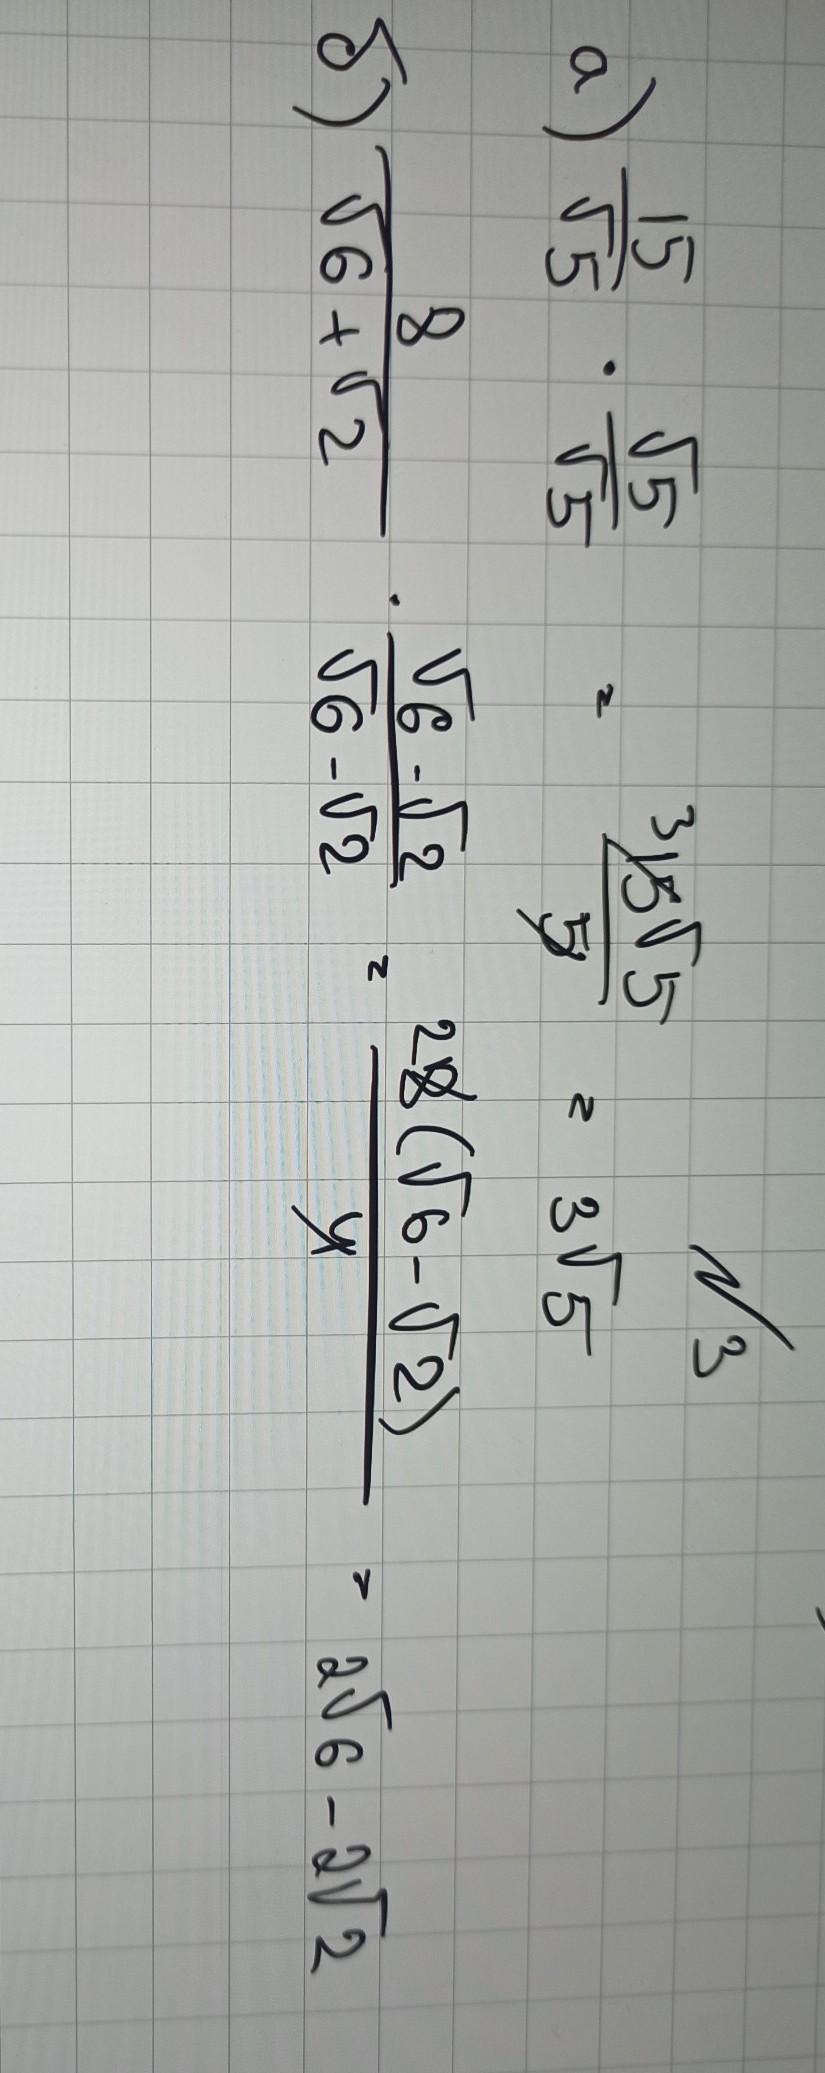 №3
а) 15/√5 · √5/√5 = 3 15√5/5 = 3√5
б) 8/(√6 + √2) · (√6 - √2)/(√6 - √2) = 2 8(√6 - √2)/4 = 2√6 - 2√2